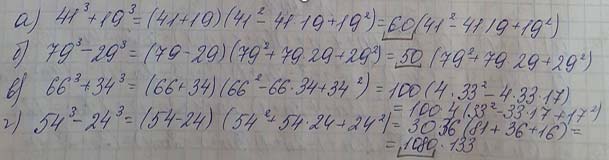 а) 41³+19³=(41+19)(41²-41·19+19²)=60(41²-41·19+19²)
б) 79³-29³=(79-29)(79²+79·29+29²)=50(79²+79·29+29²)
в) 66³+34³=(66+34)(66²-66·34+34²)=100(4·33²-4·33·17)
=100·4(33²-33·17+17²)
г) 54³-24³=(54-24)(54²+54·24+24²)=30·36(81+36+16)=
=1080·133